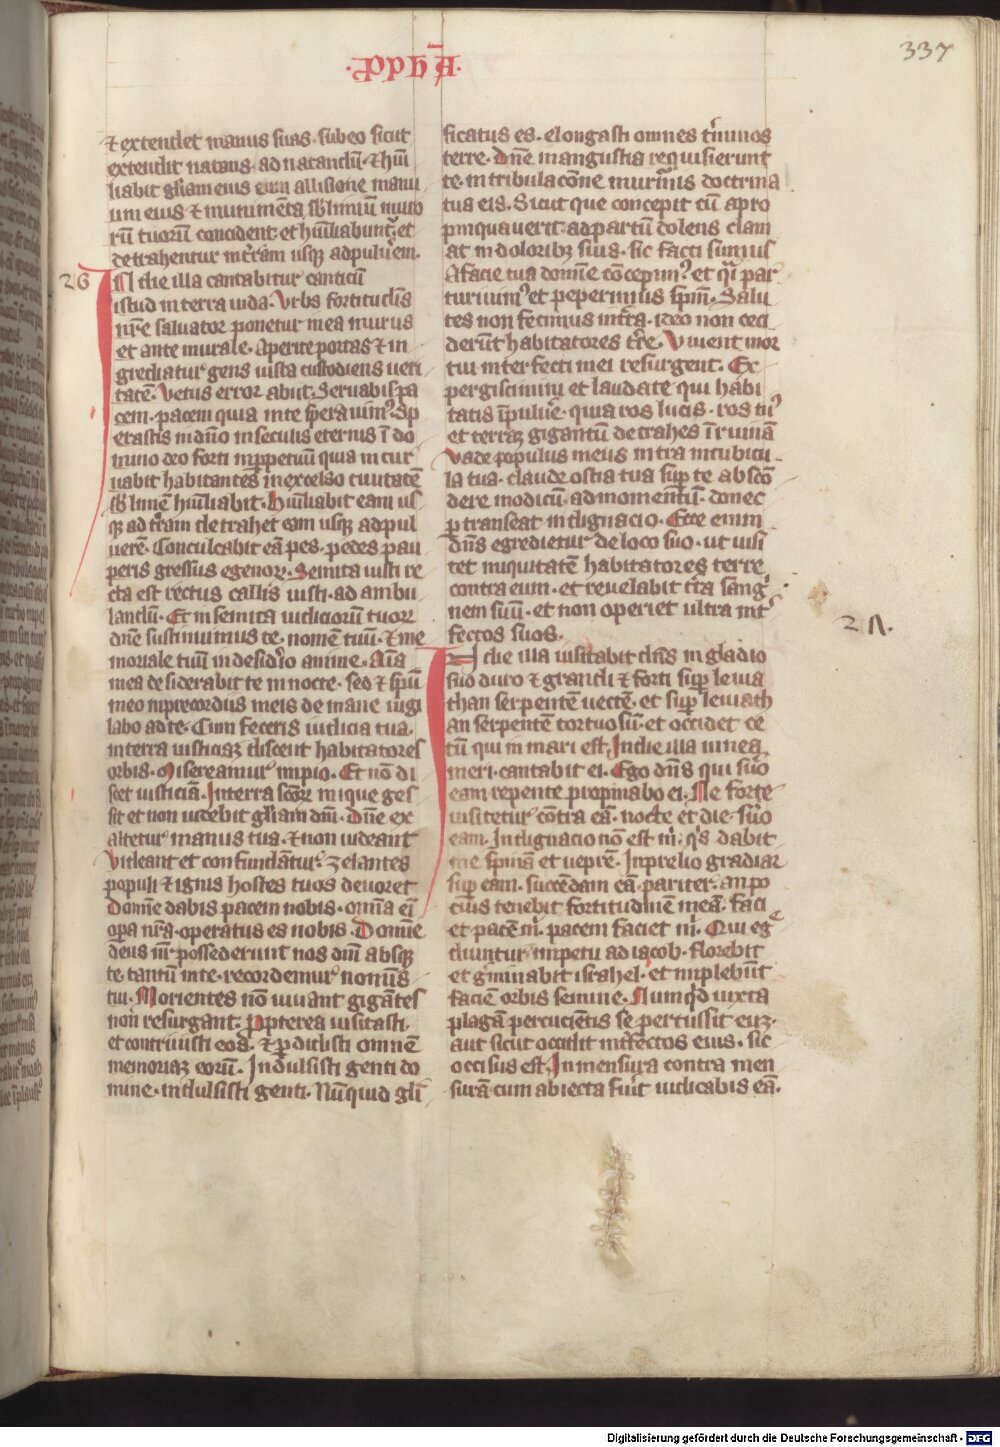 337
⁊ extendet manus suas sub eo sicut
extendit natans ad natandū. ⁊ hūi
liabit gl̄iam eius cum allisione manu
um eius ⁊ munimēta sb̄limiū muro
rū tuorū concident et hūiliabunt᷑ et
detrahentur int̄ram usq̨ ad puluerem.
26
In die illa cantabitur canticū
istud in terra iuda. Urbs fortitudīs
nr̄e saluator ponetur in ea murus
et ante murale. Aperite portas ⁊ in
grediatur gens iusta custodiens ueri
tatē. Vetus error abiit. Seruabis pa
cem. pacem quia in te sperauimꝰ. Sp
erastis in dn̄o in seculis eternis ī do
mino deo forti in ꝑpetuū quia in cur
uabit habitantes in excelso ciuitatē
sb̄limē hūiliabit. Hūiliabit eam us
q̨ ad t̄ram detrahet eam usq̨ ad pul
uerē. Conculcabit eā pes. pedes pau
peris gressus egenoꝝ. Semita iusti re
cta est rectus callis iusti. ad ambu
landū. Et in semita iudiciorū tuoꝝ
dn̄e sustinuimus te. nomē tuū. ⁊ me
moriale tuū in desid̄io anime. Aīa
mea desiderabit te in nocte. sed ⁊ sp̄u
meo in precordiis meis de mane uigi
labo ad te. Cum feceris iudicia tua
in terra iusticiaꝫ discent habitatores
orbis. Misereamur impio. Et nō di
scet iusticiā. In terra sc̄oꝝ inique ges
sit et non uidebit gl̄iam dn̄i. Dn̄e ex
altetur manus tua. ⁊ non uideant
Videant et confundātur zelantes
populi ⁊ ignis hostes tuos deuoret
Domīe dabis pacem nobis. omīa eī
opa nr̄a. operatus es nobis. Domīe
deus nr̄. possederunt nos dn̄i absq̨
te. tantū in te. recordemur nominis
tui. Morientes nō uiuant gigātes
non resurgant. Ꝓpterea uisitasti.
et contriuisti eos. ⁊ ꝑdidisti omnē
memoriaꝫ eorū. Indulsisti genti do
mine. indulsisti genti. Nūquid glī
ficatus es. elongasti omnes t̄minos
terre. Dn̄e in angustia requisierunt
te. in tribulacōne murmuris doctrina
tua eis. Sicut que concepit cū apro
pinquauerit ad partū dolens clam
at in doloribꝫ suis. sic facti sumus
A facie tua domīe cōcepimꝰ et q̄i par
turiuimꝰ et peperimus sp̄m. Salu
tes non fecimus in t̄ra. ideo non ceci
derūt habitatores t̄re. Viuent mor
tui interfecti mei resurgent. Ex
pergiscimini et laudate qui habi
tatis ī puluē. quia ros lucis. ros tuꝰ
et terraꝫ gigantū detrahes ī ruinā
Vade populus meus intra in cubicu
la tua. claude ostia tua suꝑ te absco
dere modicū. ad momentū. donec
ꝑtranseat indignacio. Ecce enim
dn̄s egredietur de loco suo. ut uisi
tet iniquitatē habitatores terre
contra eum. et reuelabit t̄ra sang
nem suū. et non operiet ultra int
fectos suos.
27.
In die illa uisitabit dn̄s in gladio
suo duro ⁊ grandi ⁊ forti suꝑ leuia
than serpentē uectē. et suꝑ leuiath
an serpentē tortuosū. et occidet ce
tū qui in mari est. In die illa uinea
meri. cantabit ei. Ego dn̄s qui suo
eam repente propinabo ei. Ne forte
uisitetur cōtra eā. nocte et die. suo
eam. Indignacio nō est m̄. q̄s dabit
me spinā et ueprē. In prelio gradiar
suꝑ eam. succēdam eā pariter. an po
cius tenebit fortitudinē meā. faci
et pacē m̄. pacem faciet m̄. Qui eg
diunt᷑ impetu ad iacob. florebit
et ḡminabit israhel. et implebūt
faciē orbis semine. Numq̄d iuxta
plagā percucientis se percussit euꝫ.
aut sicut occidit int̄fectos eius. sic
occisus est. In mensura contra men
surā cum abiecta fūit iudicabis eā.
Digitalisierung gefördert durch die Deutsche Forschungsgemeinschaft - DFG